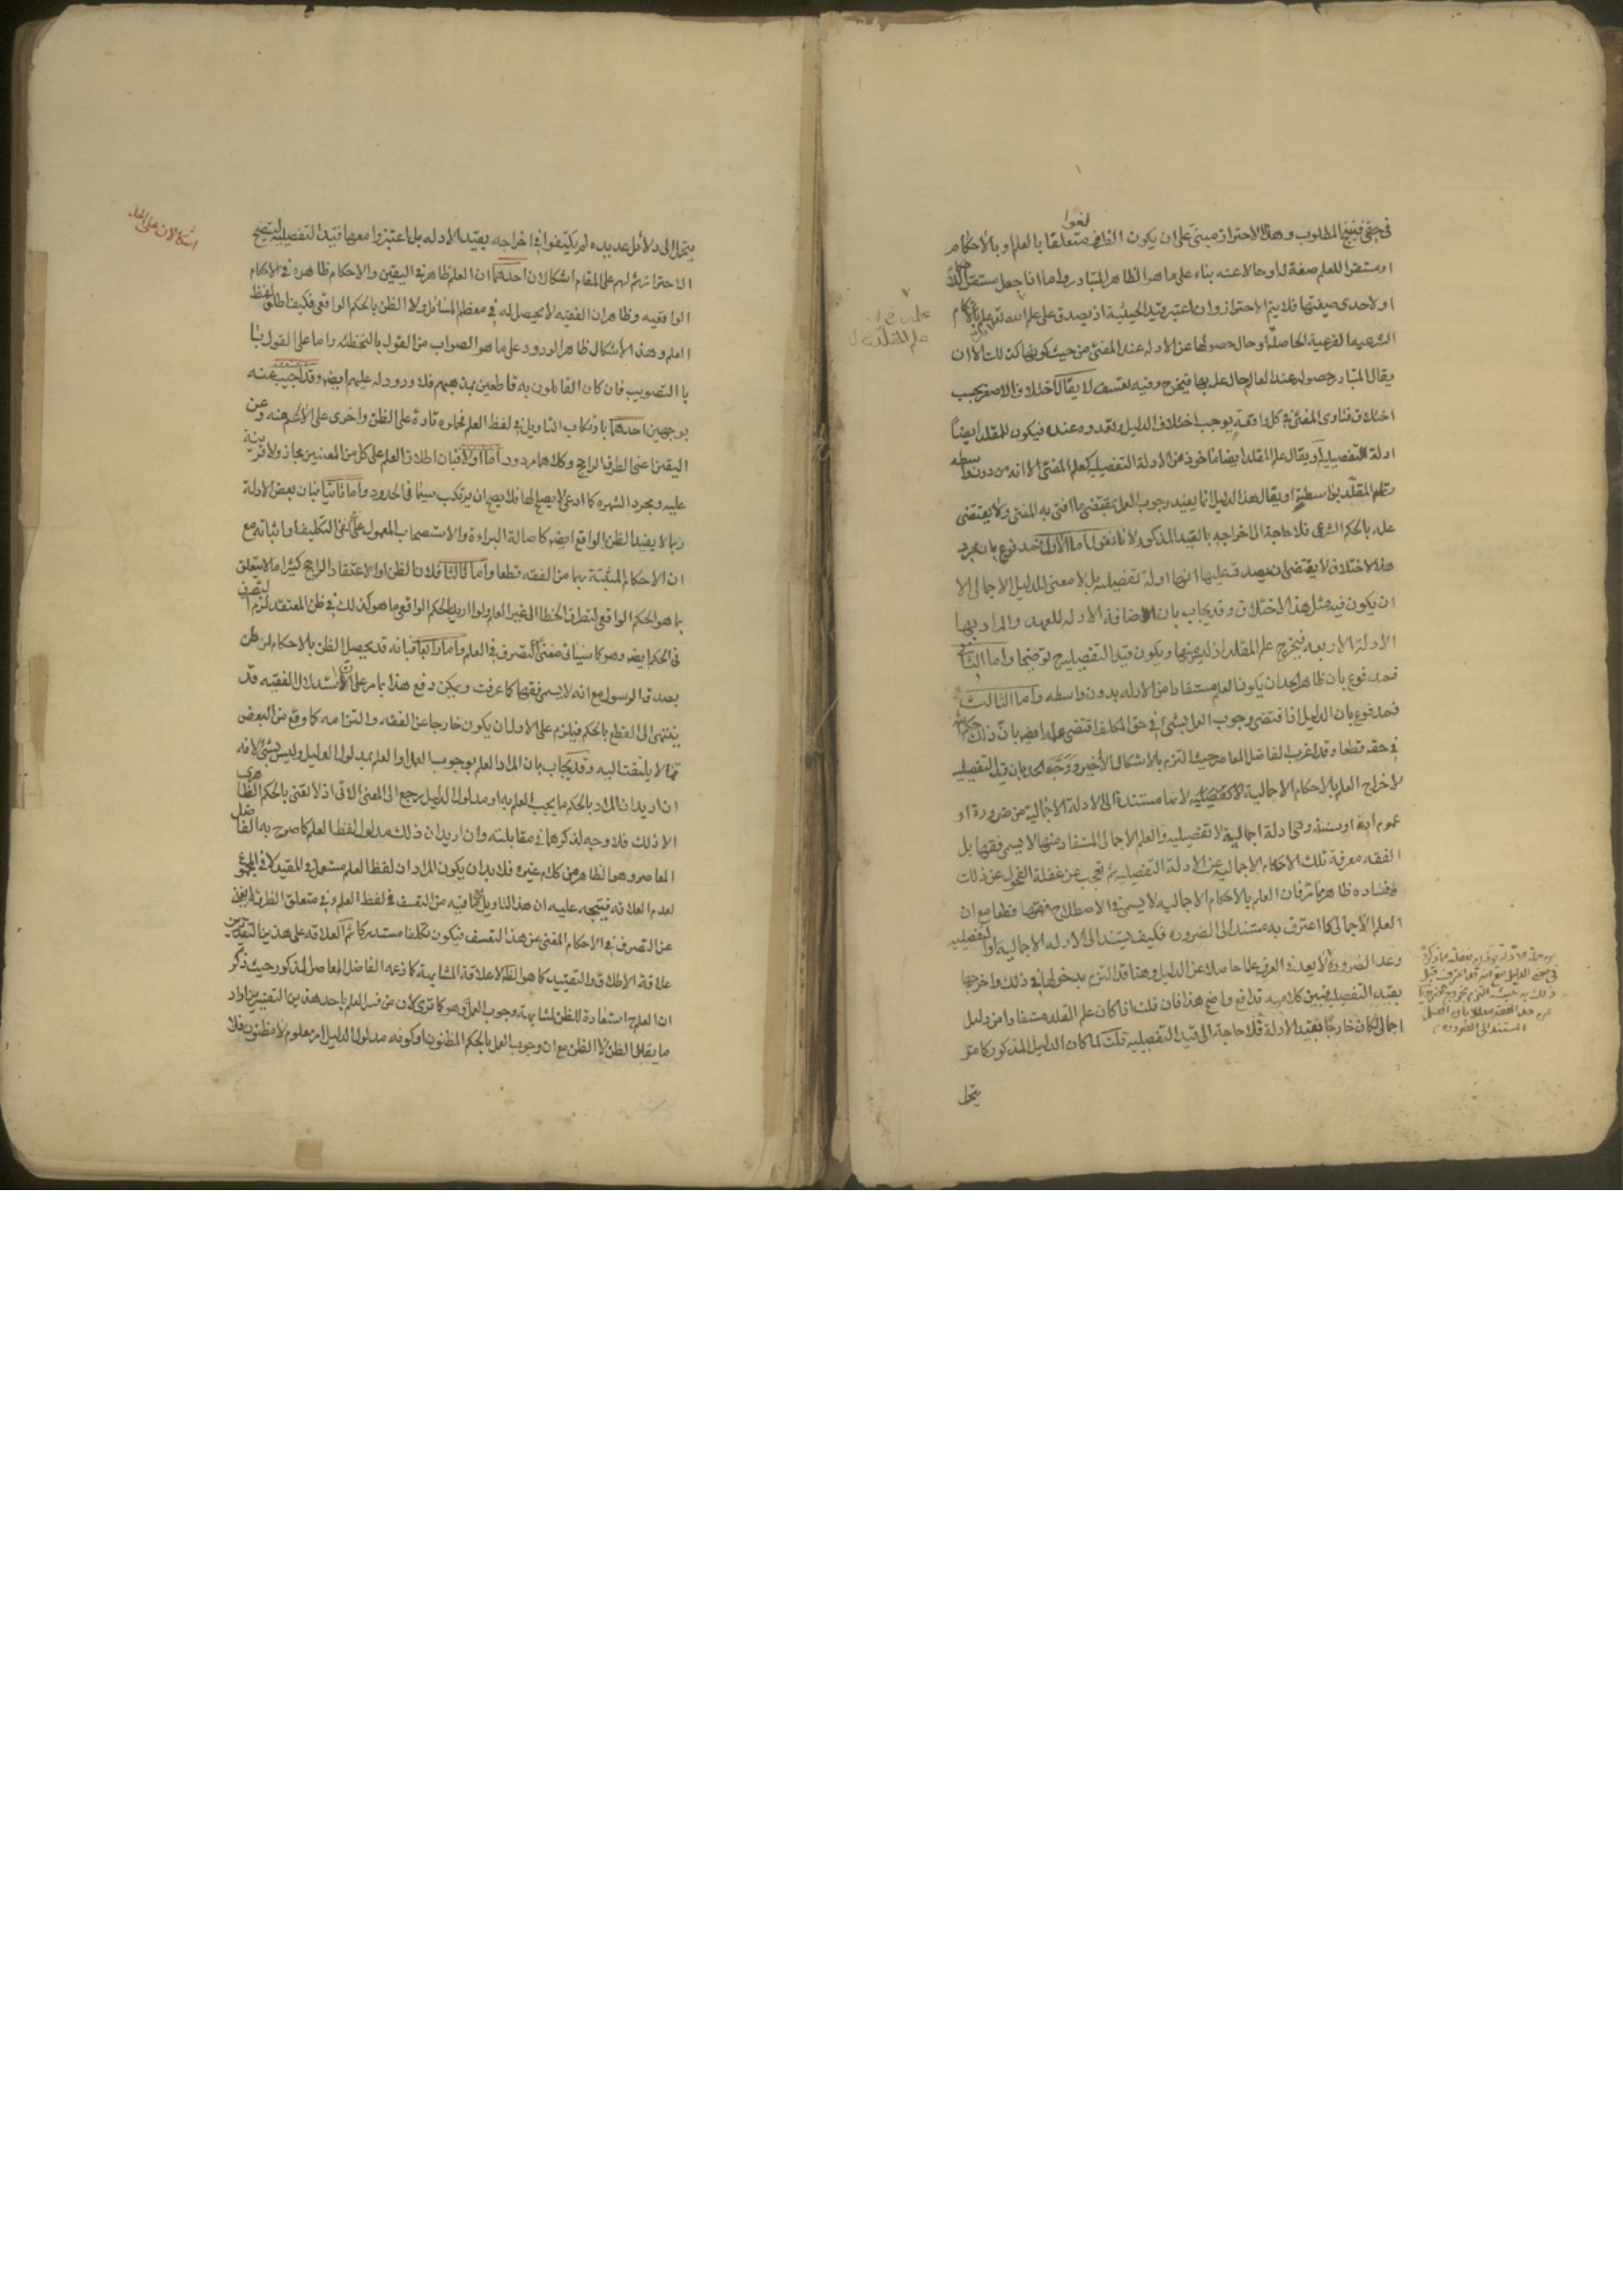 في حقي فينتج المطلوب وهذا الاحتراز مبني على ان يكون الظرف لغوا متعلقا بالعلم او بالاحكام
او مستقرا للعلم صفة له او حالا عنه بناء على ما هو الظاهر المتبادر واما اذا جعل مستقرا
او لاحدى صفتيها فلا يتم الاحتراز وان اعتبر قيد الحيثية اذ يصدق على علم الله تعالى بالاحكام
الشرعية الفرعية الحاصلة او حال حصولها عن الادلة عند المفتي من حيث كونها كذلك الا ان
يقال المتبادر حصوله عند العالم حال علمه بها فيخرج وفيه تعسف لا يقال اختلاف الاصغر بحسب
اختلاف فتاوى المفتي في كل واقعة يوجب اختلاف الدليل وتعدده عنده فيكون للمقلد ايضا
ادلة تفصيلية او يقال علم المقلد ايضا ماخوذ من الادلة التفصيلية كعلم المفتي الا انه من دون واسطه
وعلم المقلد بواسطة او يقال هذا الدليل انما يفيد وجوب العمل بمقتضى ما افتى به المفتي ولا يقتضي
علمه بالحكم الشرعي فلا حاجة الى اخراجه بالقيد المذكور لانا نقول اما الاول فمدفوع بان مجرد
هذا الاختلاف لا يقتضي ان يصدق عليها انها ادلة تفصيلية بل لا معنى للدليل الاجمالي الا
ان يكون فيه مثل هذا الاختلاف وقد يجاب بان اضافة الادلة للعهد والمراد بها
الادلة الاربعة فيخرج علم المقلد اذ ليس منها ويكون قيد التفصيلية توضيحا واما الثاني
فمدفوع بان ظاهر الحد ان يكون العلم مستفادا من الادلة بدون واسطه واما الثالث
فمدفوع بان الدليل اذا اقتضى وجوب العمل بشيء في حق المكلف اقتضى علمه ايضا بان ذلك حكم الله
في حقه قطعا وقد اغرب الفاضل المعاصر حيث التزم بالاشكال الأخير ووجه الحد بان قيد التفصيلية
لاخراج العلم بالاحكام الاجمالية لانها مستندة الى الادلة الاجمالية من ضرورة او
عموم اية او سنة وهي ادلة اجمالية لا تفصيلية والعلم الاجمالي المستفاد منها لا يسمى فقها بل
الفقه معرفة تلك الاحكام الاجمالية عن الادلة التفصيلية ثم تعجب عن غفلة الفحول عن ذلك
وفساده ظاهر مما مر فان العلم بالاحكام الاجمالية لا يسمى في الاصطلاح فقها قطعا مع ان
العلم الاجمالي كما اعترف به مستند الى الضرورة فكيف يستند الى الادلة الاجمالية او التفصيلية
وعد الضرورة لا يعد في العرف علما حاصلا عن الدليل وهنا قد التزم بدخولها في ذلك واخرجها
بقيد التفصيلية فبين كلاميه تدافع واضح هذا فان قلت اذا كان علم المقلد مستفادا من دليل
اجمالي كان خارجا بقيد الادلة فلا حاجة الى قيد التفصيلية قلت لما كان الدليل المذكور كما مر
ينحل
علم المقلد
ينحل الى دلائل عديده لم يكتفوا في اخراجه بقيد الادلة بل اعتبروا معها قيد التفصيلية ليتضح
الاحتراز ثم لهم على المقام اشكالان احدهما ان العلم ظاهر في اليقين والاحكام ظاهرة في الاحكام
الواقعيه وظاهر ان الفقيه لا يحصل له في معظم المسائل الا الظن بالحكم الواقعي فكيف اطلق لفظ
العلم وهذا الاشكال ظاهر الورود على ما هو الصواب من القول بالتخطئه واما على القول
بالتصويب فان كان القائلون به قاطعين بمذهبهم فلا ورود له عليهم ايض وقد اجيب عنه
بوجهين احدهما بارتكاب التاويل في لفظ العلم بحمله تارة على الظن واخرى على الأعم منه وعن
اليقين اعني الطرف الراجح وكلاهما مردود اما اولا فبان اطلاق العلم على كل من المعنيين مجاز ولا قرينة
عليه ومجرد الشهره كما ادعي لا يصلح لها فلا يصح ان يرتكب سيما في الحدود واما ثانيا فبان بعض الادلة
ربما لا يفيد الظن بالواقع ايضا كاصالة البراءة والاستصحاب المعمول على نفي التكليف او اثباته مع
ان الاحكام المثبتة بها من الفقه قطعا واما ثالثا فلان الظن او الاعتقاد الراجح كثيرا ما لا يتعلق
بما هو الحكم الواقعي لتطرق الخطا الى غير العلم ولو اريد بالحكم الواقعي ما هو كذلك في ظن المعتقد لزم التصرف
في الحكم ايضا وهو كما سياتي مغن التصرف في العلم واما رابعا فبانه قد يحصل الظن بالاحكام لمن ظن
بصدق الرسول مع انه لا يسمى فقها كما عرفت ويمكن دفع هذا بما مر على ان استدلال الفقيه قد
ينتهي الى القطع بالحكم فيلزم على الاول ان يكون خارجا عن الفقه والتزامه كما وقع من البعض
مما لا يلتفت اليه وقد يجاب بان المراد العلم بوجوب العمل او العلم بمدلول الدليل وليس بشيء لانه
ان اريد ان المراد بالحكم ما يجب العلم به او مدلول الدليل رجع الى المعنى الاتي اذ لا نعني بالحكم الظاهري
الا ذلك فلا وجه لذكرهما في مقابلته وان اريد ان ذلك مدلول لفظ العلم كما صرح به الفاضل
المعاصر وهو الظاهر من كلام غيره فلا بد ان يكون المراد ان لفظ العلم مستعمل في المقيد لا في المجموع
لعدم العلاقه فيتجه عليه ان هذا التاويل مما فيه من التعسف في لفظ العلم وفي متعلق الظرف
عن التصرف في الاحكام المغني عن هذا التعسف فيكون تكلفا مستدركا ثم العلاقه على هذين التقديرين
علاقة الاطلاق والتقييد كما هو الظ لا علاقة المشابهة كما زعمه الفاضل المعاصر المذكور حيث ذكر
ان العلم ح استعارة للظن لمشابهته وجوب العمل وهو كما ترى لان من فسر العلم باحد هذين التفسيرين اراد
ما يقابل الظن لا الظن مع ان وجوب العمل بالحكم المظنون او كونه مدلول الدليل امر معلوم لا مظنون فلا
اشكالان على الحد